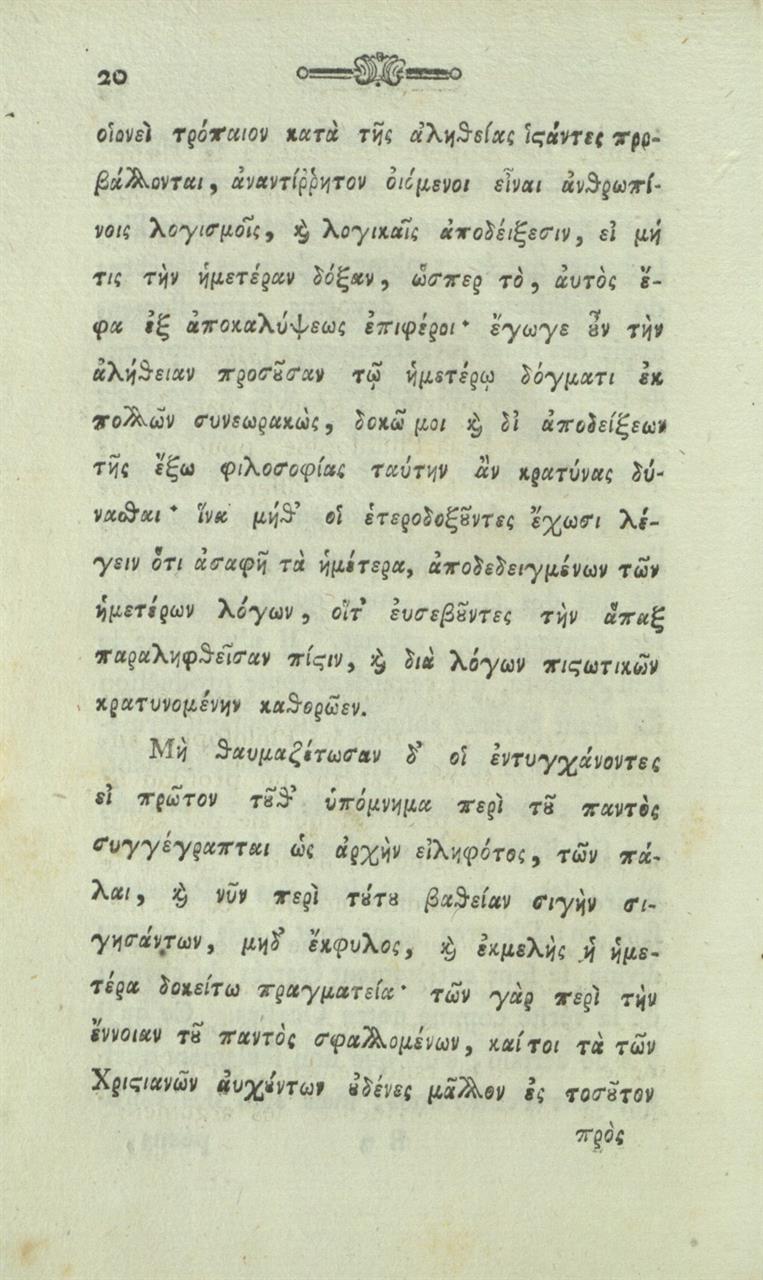 20
οἱονεὶ τρόπαιον κατὰ τῆς ἀληθείας ἱϛάντες προ-
βάλλονται, ἀναντίῤῥητον οἰόμενοι εἶναι ἀνθρωπί-
νοις λογισμοῖς, ϗ λογικαῖς ἀποδείξεσιν, εἰ μή
τις τὴν ἡμετέραν δόξαν, ὥσπερ τὸ, ἀυτὸς ἔ-
φα ἐξ ἀποκαλύψεως ἐπιφέροι· ἔγωγε ȣ̓͂ν τὴν
ἀλήθειαν προσȣ͂σαν τῷ ἡμετέρῳ δόγματι ἐκ
πολλῶν συνεωρακὼς, δοκῶ μοι ϗ δἰ ἀποδείξεων
τῆς ἔξω φιλοσοφίας ταύτην ἂν κρατύνας δύ-
νασθαι· ἵνα μήθ' οἱ ἑτεροδοξȣ͂ντες ἔχωσι λέ-
γειν ὅτι ἀσαφῆ τὰ ἡμέτερα, ἀποδεδειγμένων τῶν
ἡμετέρων λόγων, οἵτ' ἐυσεβȣ͂ντες τὴν ἅπαξ
παραληφθεῖσαν πίϛιν, ϗ διὰ λόγων πιϛωτικῶν
κρατυνομένην καθορῶεν.
Μὴ θαυμαζέτωσαν δ' οἱ ἐντυγχάνοντες
εἰ πρῶτον τȣ͂θ' ὑπόμνημα περὶ τȣ͂ παντὸς
συγγέγραπται ὡς ἀρχὴν εἰληφότος, τῶν πά-
λαι, ϗ νῦν περὶ τȣ́τȣ βαθεῖαν σιγὴν σι-
γησάντων, μηδ' ἔκφυλος, ϗ ἐκμελὴς ἡ ἡμε-
τέρα δοκείτω πραγματεία· τῶν γὰρ περὶ τὴν
ἔννοιαν τȣ͂ παντὸς σφαλλομένων, καίτοι τὰ τῶν
Χριϛιανῶν ἀυχȣ́ντων ȣ̓δένες μᾶλλον ἐς τοσȣ͂τον
πρὸς